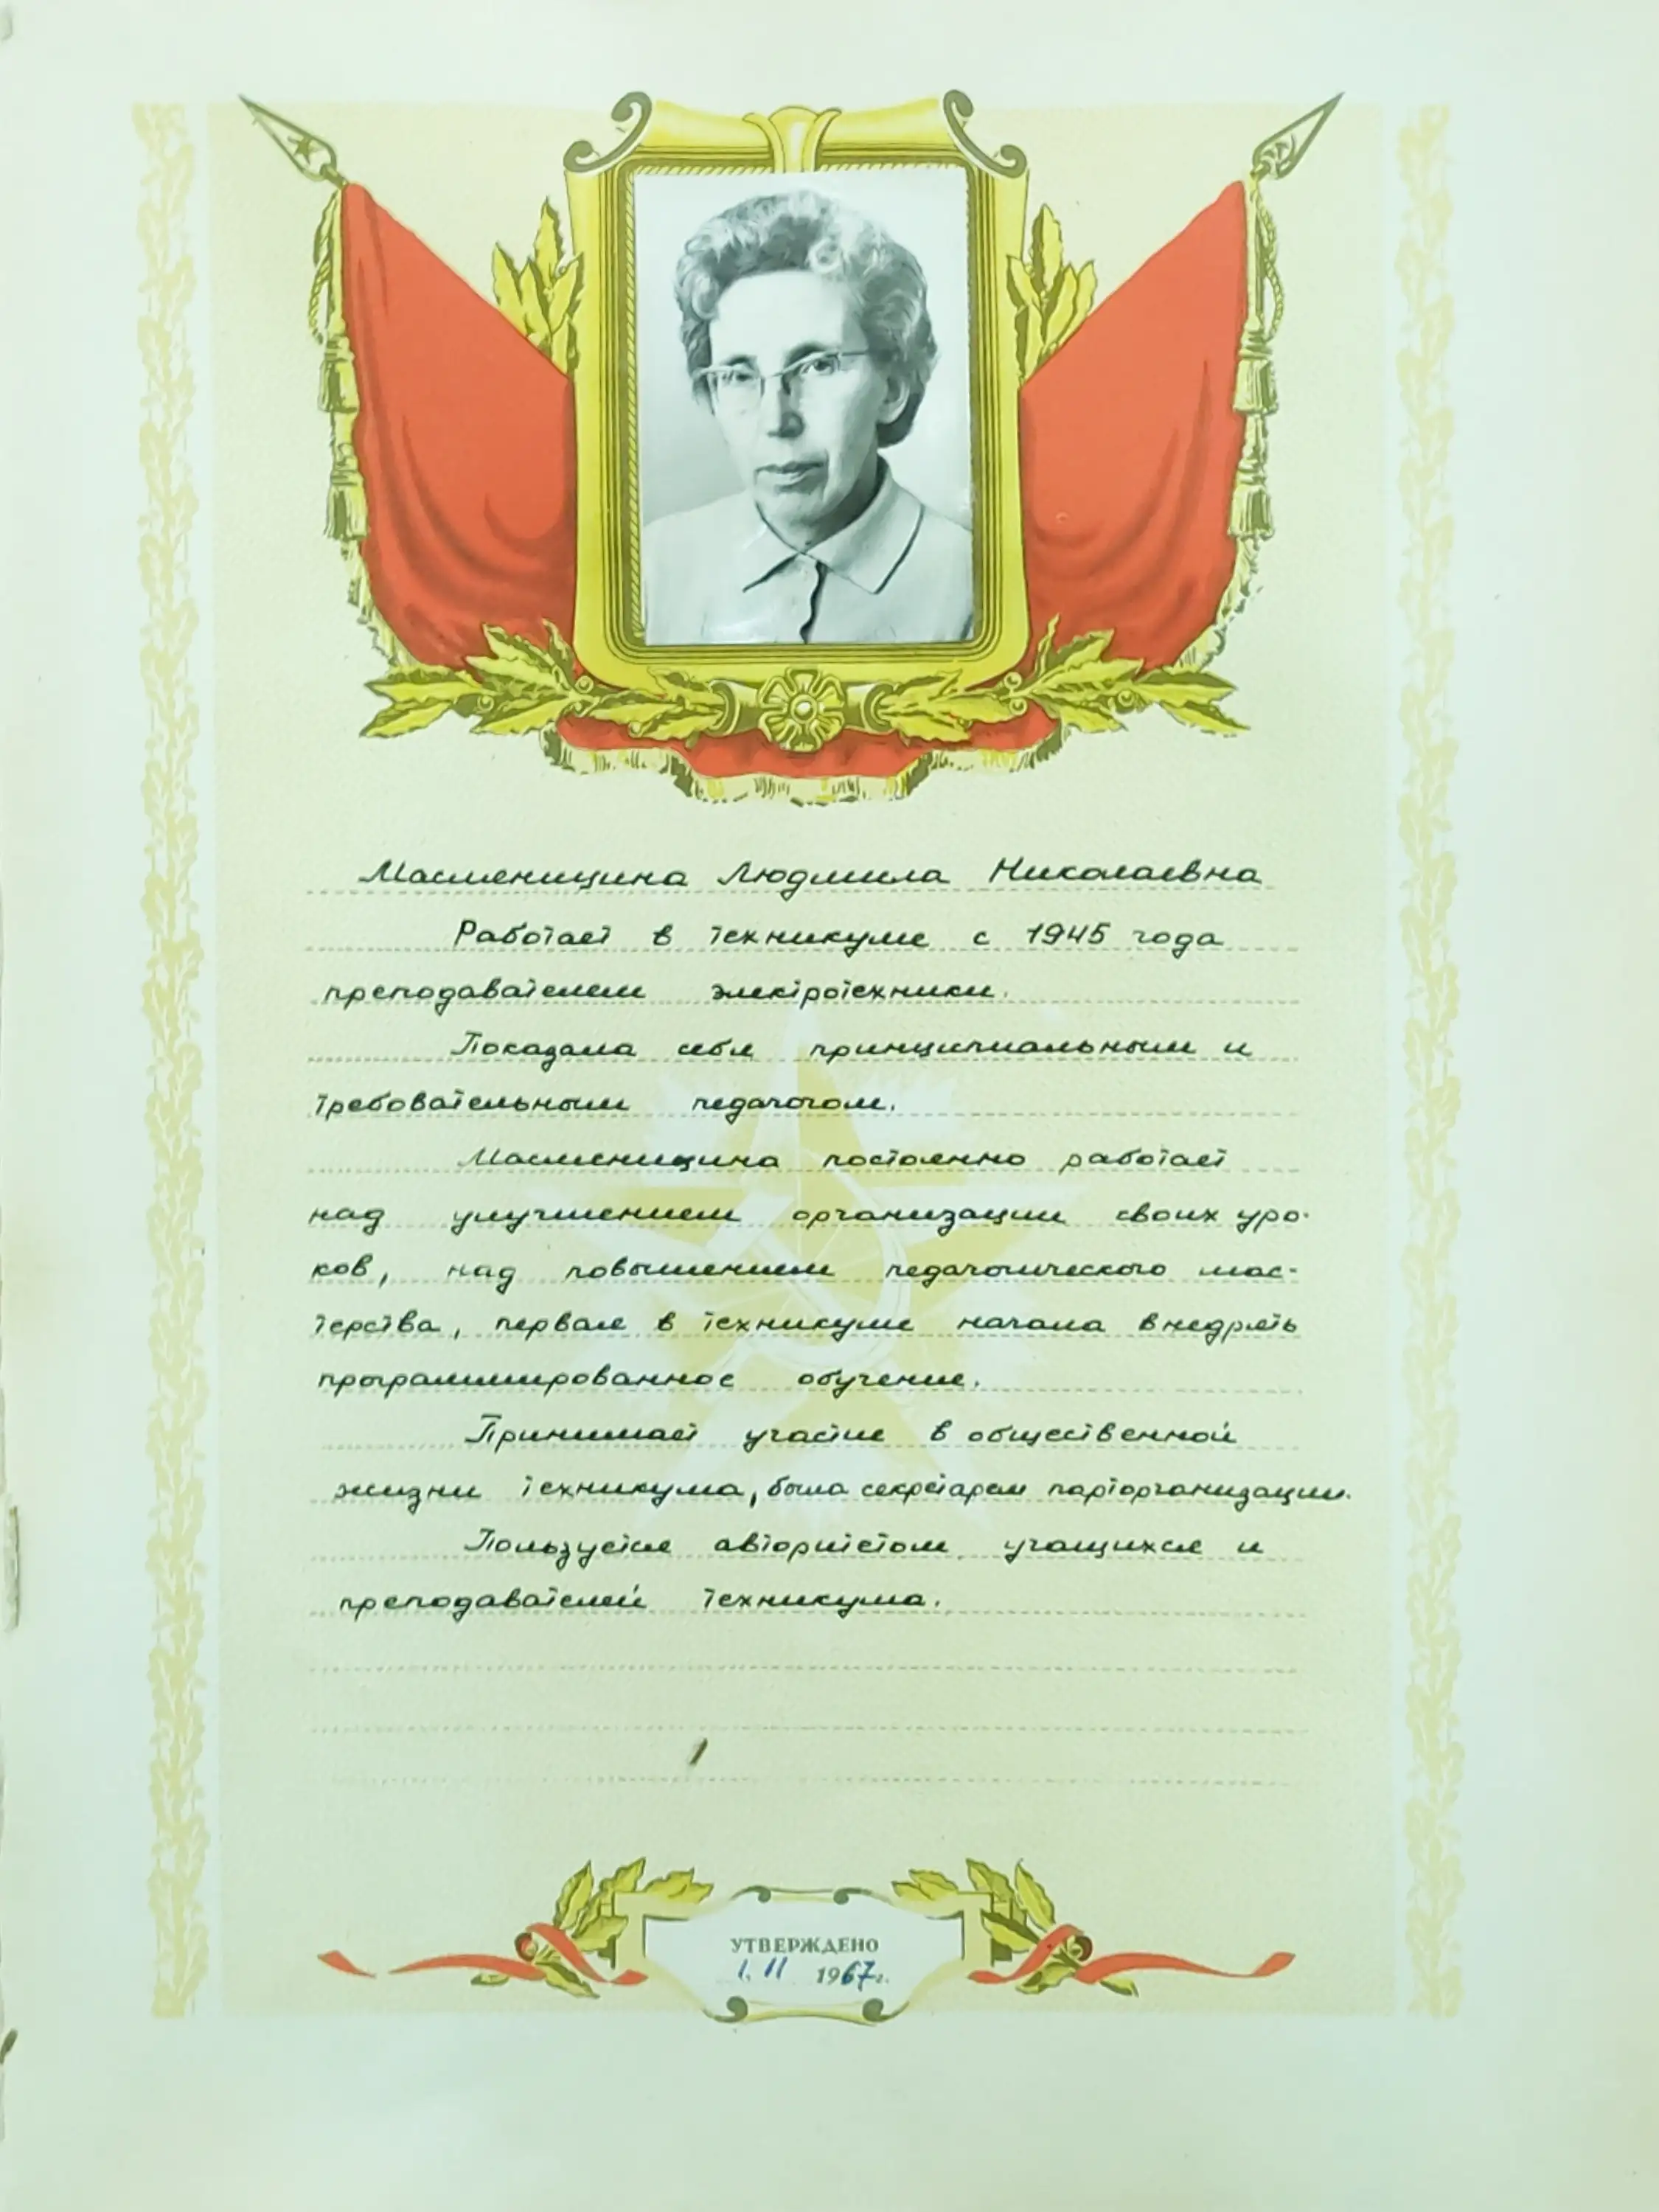 Масленицина Людмила Николаевна
Работает в техникуме с 1945 года
преподавателем электротехники.
Показала себя принципиальным и
требовательным педагогом.
Масленицина постоянно работает
над улучшением организации своих уро-
ков, над повышением педагогического мас-
терства, первая в техникуме начала внедрять
программированное обучение.
Принимает участие в общественной
жизни техникума, была секретарем парторганизации.
Пользуется авторитетом учащихся и
преподавателей техникума.
УТВЕРЖДЕНО
1. II 1967 г.